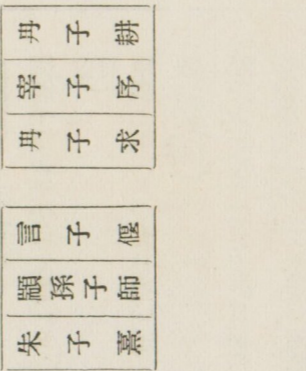 冉子耕
宰子序
冉子求
言子偃
顓孫子師
朱子熹